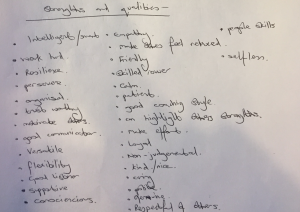 Strengths and qualities -
• Intelligent/smart
• work hard
• Resilience
• persevere
• organised
• trust worthy
• motivate others
• good communicator
• Versatile
• flexibility
• Good listener
• supportive
• conscientious.
• empathy.
• make others feel valued.
• Friendly
• Skilled
• Calm.
• patients.
• good coaching style.
• can highlights others strengths.
• make efforts
• Loyal
• Non-judgemental.
• Kind/nice
• caring
• polite.
• Respectful of others.
• people skills
• selfless.